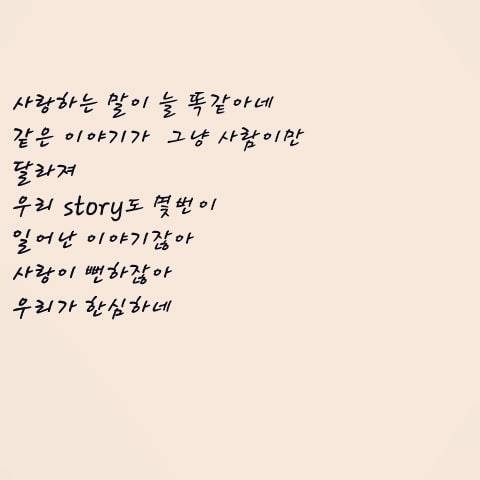 사랑하는 말이 늘 똑같아네
같은 이야기가 그냥 사람이만
달라져
우리 story도 몇번이
일어난 이야기잖아
사랑이 뻔하잖아
우리가 한심하네